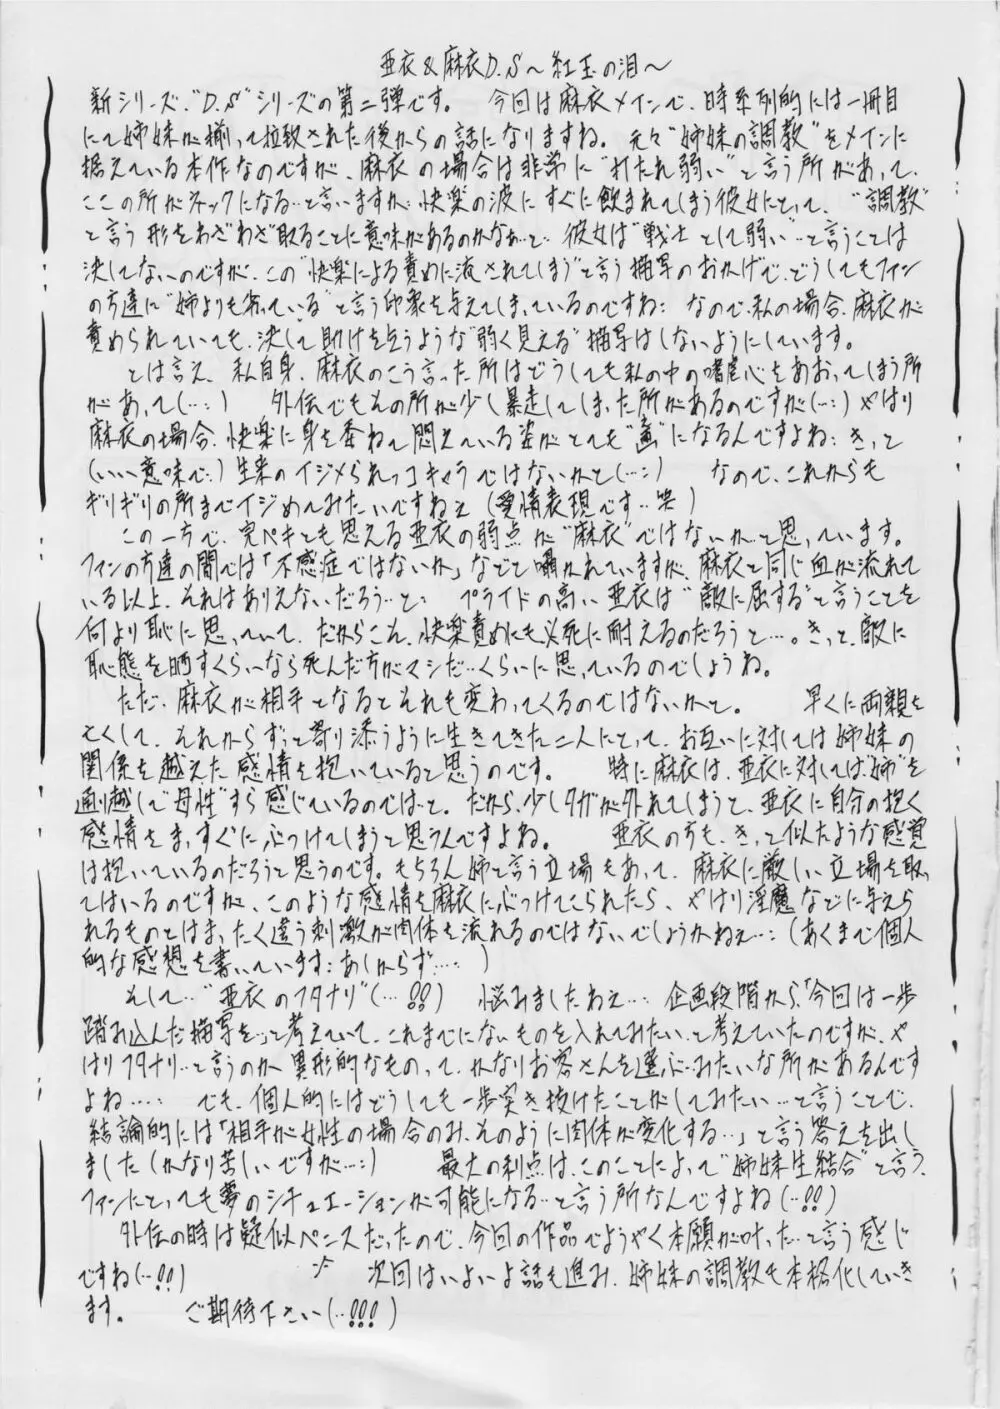 亜衣&麻衣D.S～紅玉の泪～
新シリーズ、"D.S"シリーズの第二弾です。 今回は麻衣メインで、時系列的には一冊目
にて姉妹が揃って拉致された後からの話になりますね。元々"姉妹の調教"をメインに
据えている本作なのですが、麻衣の場合は非常に"打たれ弱い"と言う所があって、
ここの所がネックになる…と言いますか…快楽の波にすぐに飲まれてしまう彼女にとって、"調教"
と言う形をわざわざ取ることに意味があるのかなぁ…と… 彼女は"戦士として弱い"…と言うことは
決してないのですが、この"快楽による責めに流されてしまう"と言う描写のおかげで、どうしてもファン
の方達に"姉よりも劣っている"と言う印象を与えてしまっているのですね: なので、私の場合、麻衣が
責められていても、決して助けを乞うような"弱く見える"描写はしないようにしています。
とは言え、私自身、麻衣のこう言った所はどうしても私の中の嗜虐心をあおってしまう所
があって(…:) 外伝でもその所が少し暴走してしまった所があるのですが(…:)やはり
麻衣の場合、快楽に身を委ねて悶えている姿がとても"画"になるんですよね: きっと
(いい意味で:)生来のイジメられっコキャラではないかと(…:) なので、これからも
ギリギリの所までイジめてみたいですねえ(愛情表現です…笑)
この一方で、完ペキとも思える亜衣の弱点が"麻衣"ではないかと思っています。
ファンの方達の間では「不感症ではないか」などと囁かれていますが、麻衣と同じ血が流れて
いる以上、それはありえないだろう…と: プライドの高い亜衣は"敵に屈する"と言うことを
何より恥に思っていて、だからこそ、快楽責めにも必死に耐えるのだろうと…。きっと、敵に
恥態を晒すくらいなら死んだ方がマシだ…くらいに思っているのでしょうね。
ただ、麻衣が相手となるとそれも変わってくるのではないかと。 早くに両親を
亡くして、それからずっと寄り添うように生きてきた二人にとって、お互いに対しては姉妹の
関係を越えた感情を抱いていると思うのです。 特に麻衣は、亜衣に対しては"姉"を
通り越して"母性"すら感じているのではと。だから、少しタガが外れてしまうと、亜衣に自分の抱く
感情をまっすぐにぶつけてしまうと思うんですよね。 亜衣の方も、きっと似たような感覚
は抱いているのだろうと思うのです。もちろん姉と言う立場もあって、麻衣に厳しい立場を取っ
てはいるのですが、このような感情を麻衣にぶつけてこられたら、やはり淫魔などに与えら
れるものとはまったく違う刺激が肉体を流れるのではないでしょうかねえ…:(あくまで個人
的な感想を書いています:あしからず…:)
そして…"亜衣のフタナリ"(…!!) 悩みましたねえ… 企画段階から「今回は一歩
踏み込んだ描写を」と考えていて、これまでにないものを入れてみたい、と考えていたのですが、や
はりフタナリ…と言うのか異形的なものって、かなりお客さんを選ぶ…みたいな所があるんです
よね…: でも、個人的にはどうしても一歩突き抜けたことがしてみたい…と言うことで、
結論的には「相手が女性の場合のみ、そのように肉体が変化する…」と言う答えを出し
ました(かなり苦しいですが…:) 最大の利点は、このことによって"姉妹生結合"と言う、
ファンにとっても夢のシチュエーションが可能になる…と言う所なんですよね(…!!)
外伝の時は疑似ペニスだったので、今回の作品でようやく本願が叶った…と言う感じ
ですね(…!!) 次回はいよいよ話も進み、姉妹の調教も本格化していき
ます。 ご期待下さい(…!!!)